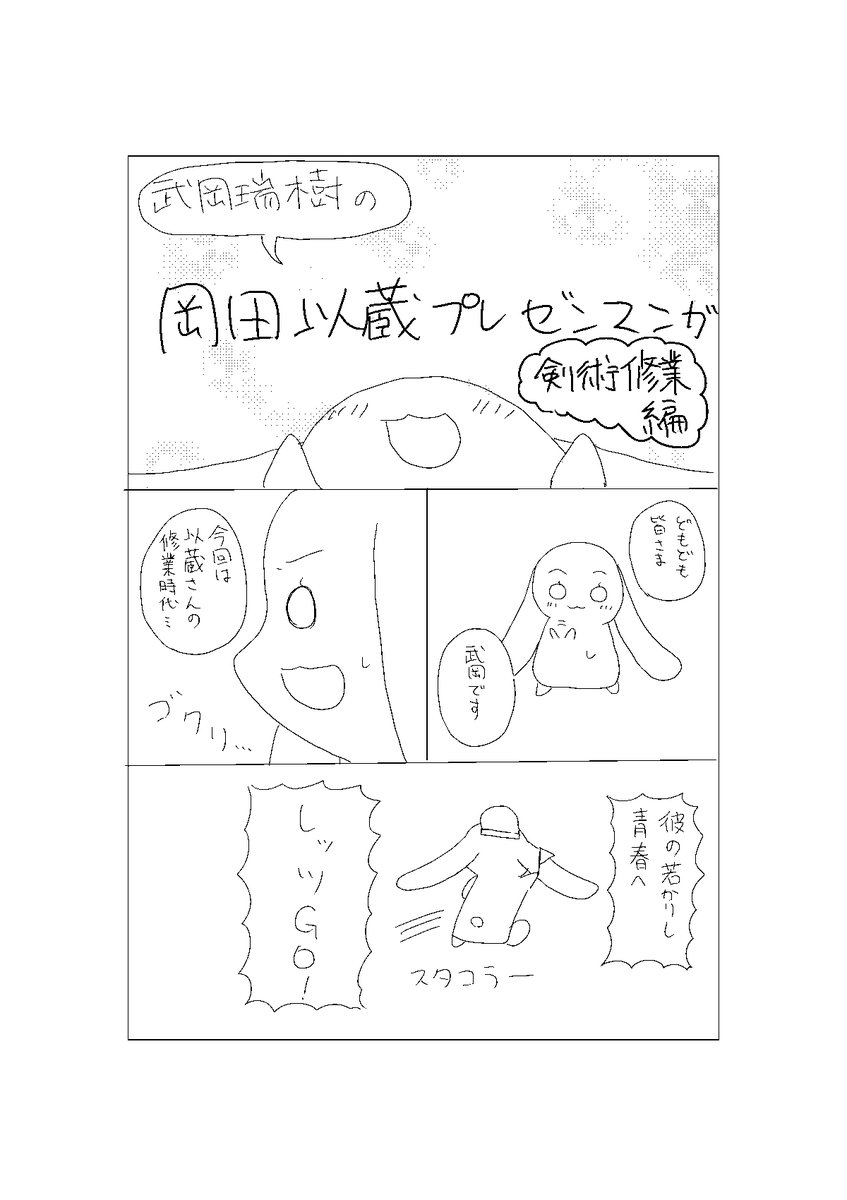 武岡瑞樹の
岡田以蔵プレゼンマンガ
剣術修業
編
どもども
皆さま
武岡です
今回は
以蔵さんの
修業時代…
ゴクリ…
彼の若かりし
青春へ
スタコラー
レッツGO!